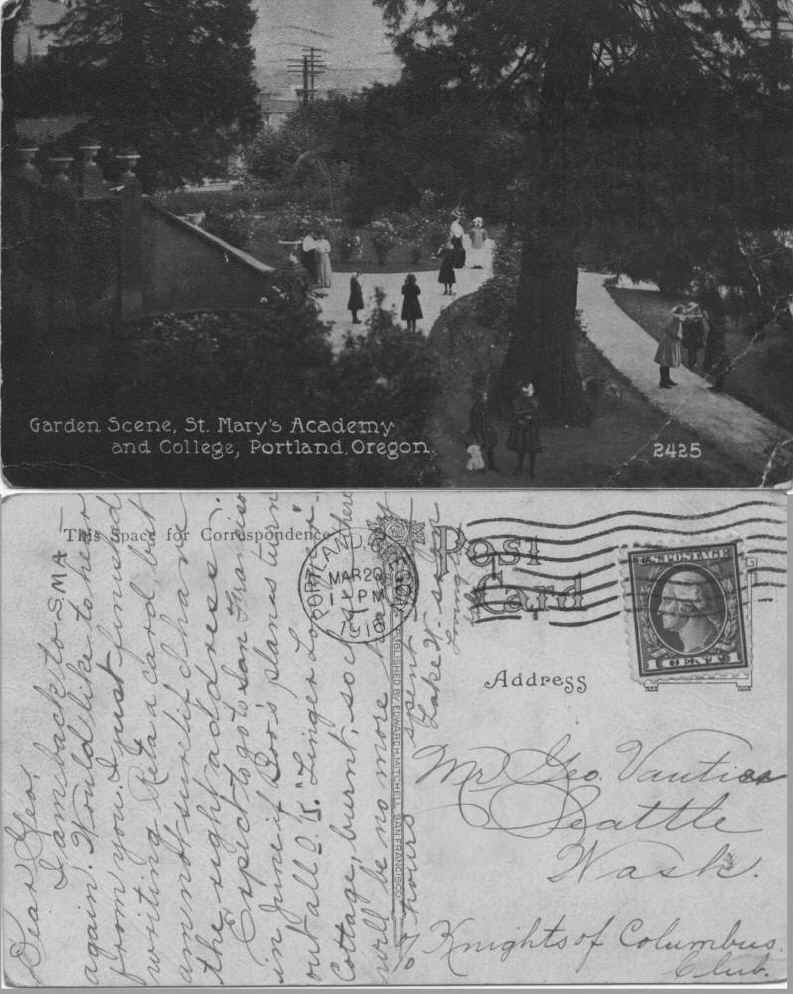 Garden Scene, St. Mary's Academy
and College, Portland, Oregon.
2425
This Space for Correspondence
Post
Card
Address
PORTLAND, OREGON
MAR 20
1 PM
1918
U.S. POSTAGE
1 CENT 1
PUBLISHED BY EDWARD H. MITCHELL, SAN FRANCISCO
Dear Geo,
I am back to S.M.A.
again. Would like to hear
from you. I just finished
writing Reta a card but
am not sure if I have
the right address.
Expect to go to San Francisco
in June if Boo's planes turn
out all O.K. "Linger Longer"
Cottage, burnt, so there
will be no more
hours spent
Lake W.
Mr. Geo. Vautier
Seattle
Wash.
Knights of Columbus.
Club.